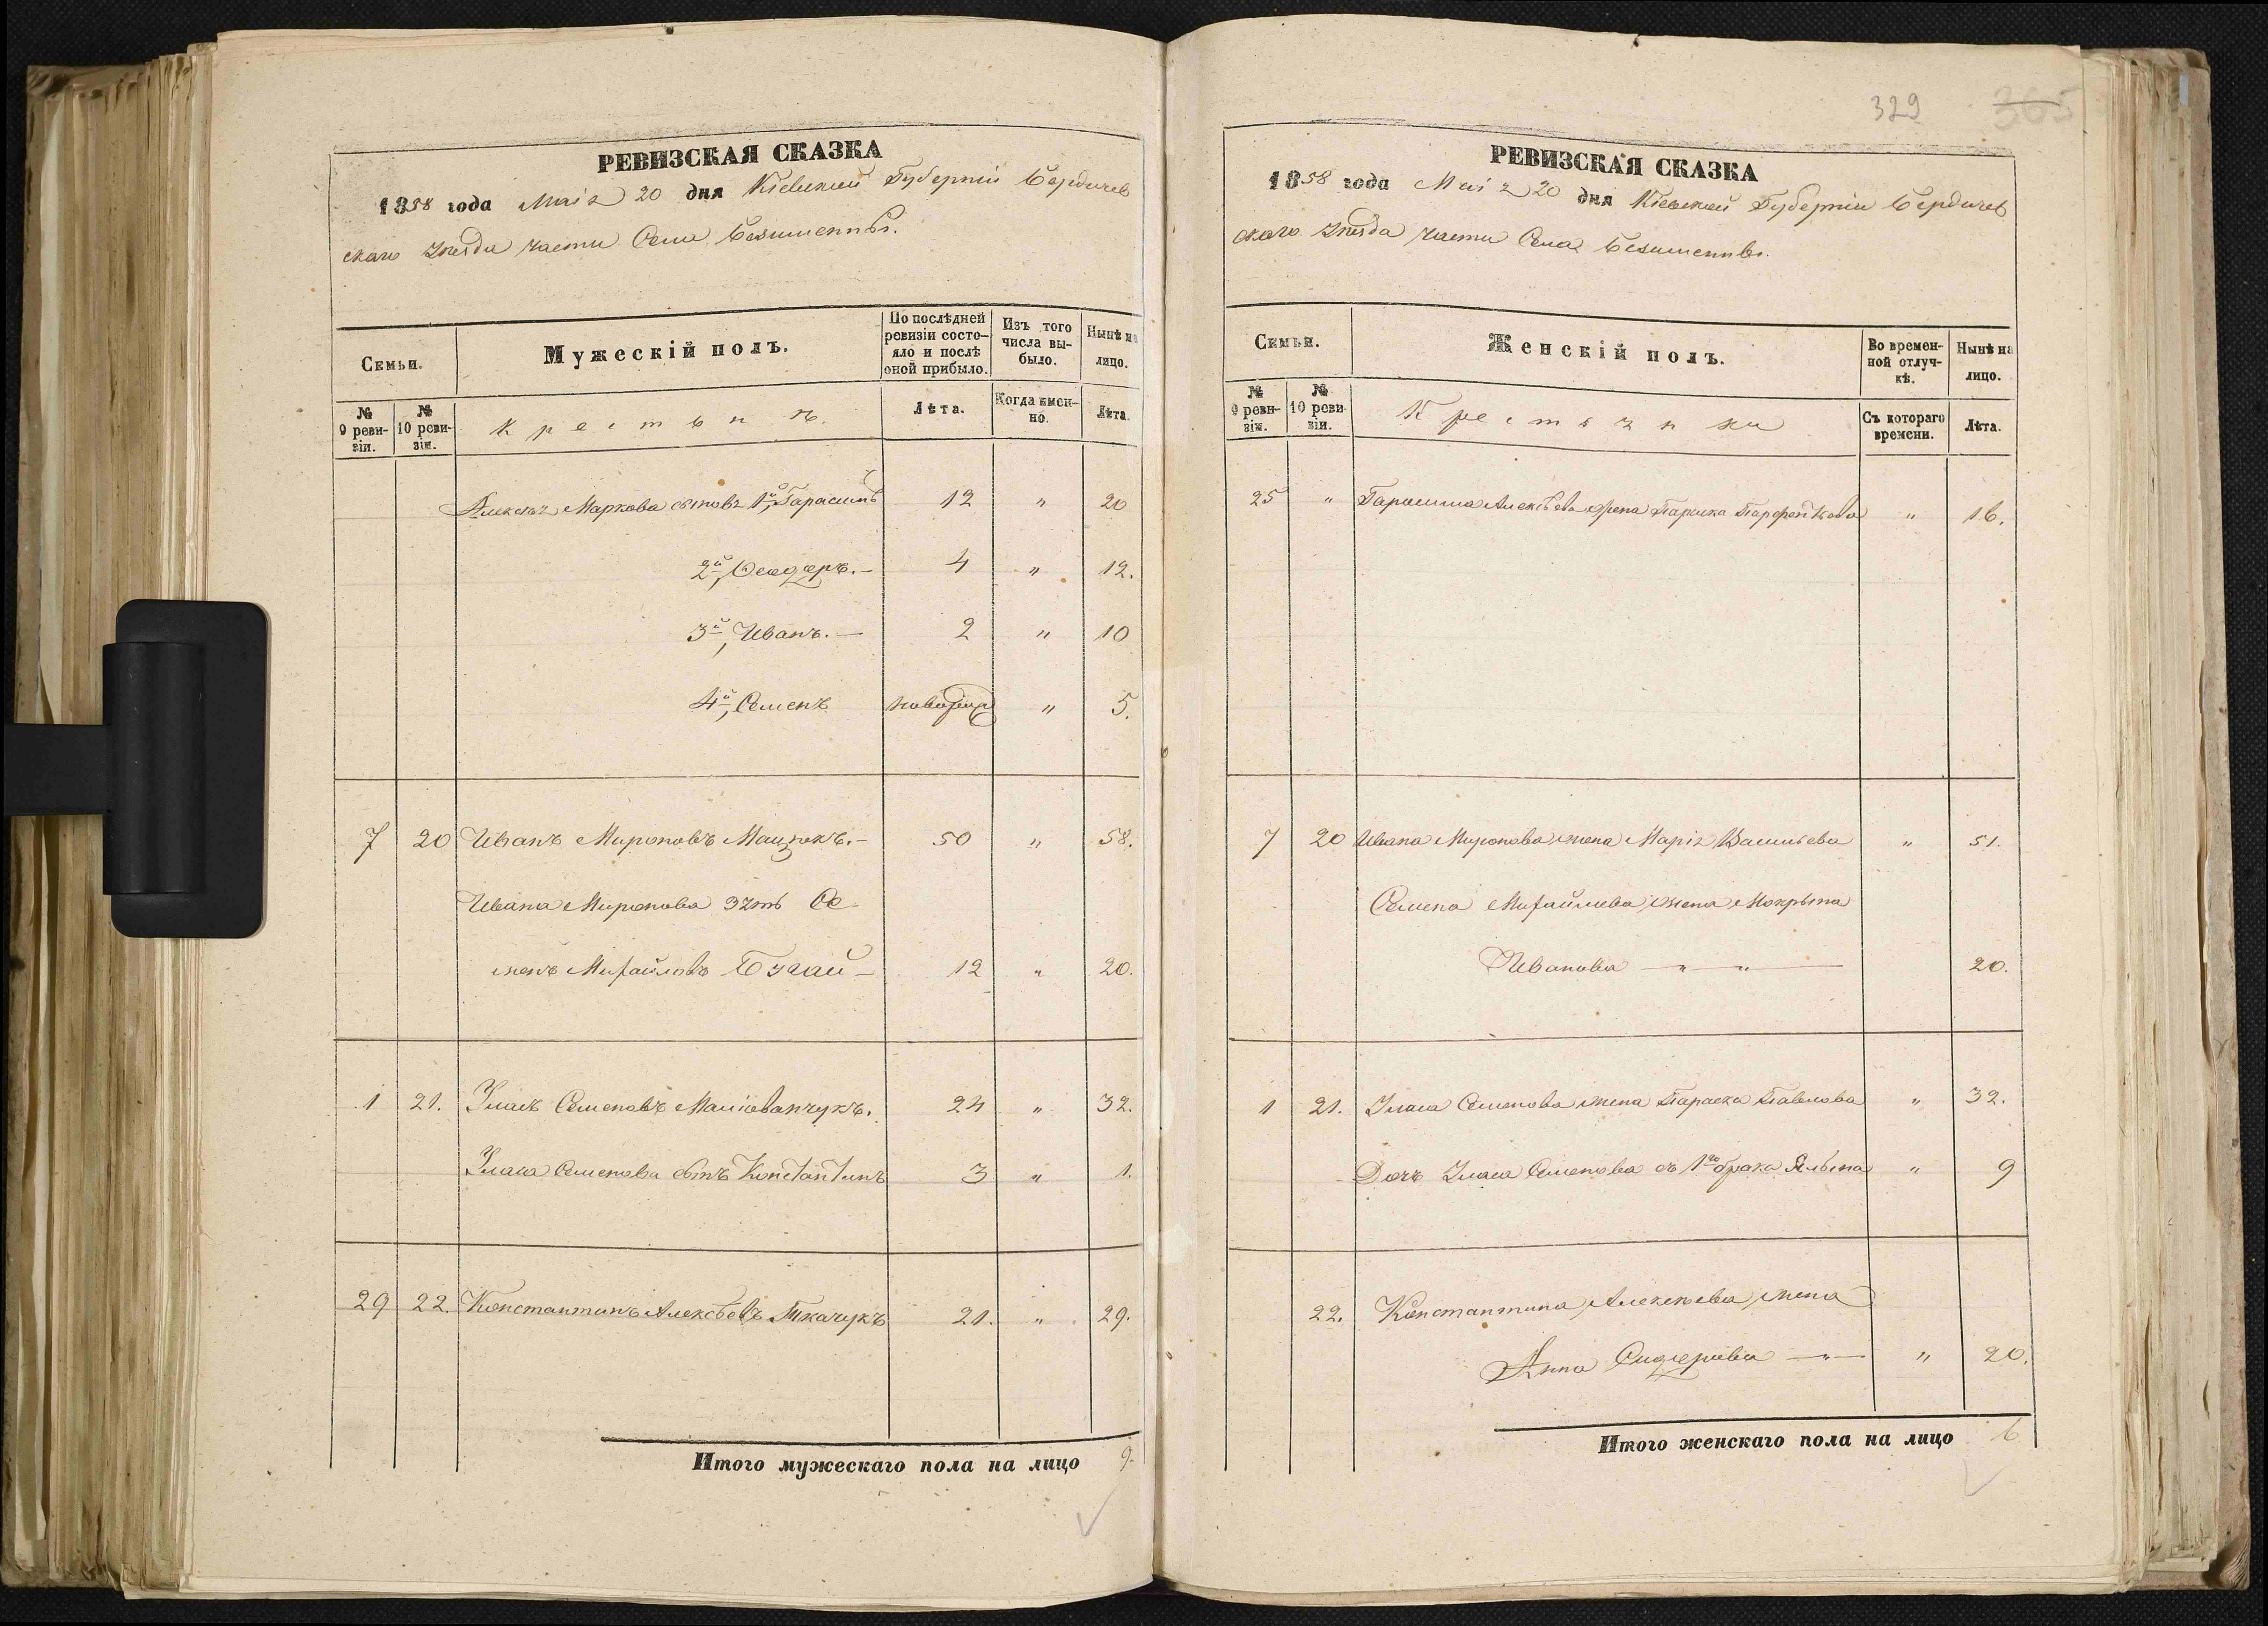 РЕВИЗСКАЯ СКАЗКА
1858 года Маія 20 дня Кіевской Губерніи Бердичев
скаго Уезда части Села Безименнъ.
Семьи.
Мужескій полъ.
По послѣдней ревизіи состояло и послѣ оной прибыло.
Изъ того числа выбыло.
Нынѣ на лицо.
№ 9 ревизіи.
№ 10 ревизіи.
Крестьян ъ.
Лѣта.
Когда именно.
Лѣта.
Алексея Маркова сыновъ 1й, Гарасимъ 12 " 20
2й, Феодоръ. — 4 " 12.
3й, Иванъ. — 2 " 10
4й, Семенъ " 5.
7 20 Иванъ Мироновъ Мацюкъ. — 50 " 58.
Ивана Миронова зять Се
менъ Михайловъ Бугай — 12 " 20.
1 21. Улас Семеновъ 24 " 32.
Уласа Семенова сынъ Константинъ 3 " 1.
29 22. Константинъ Алексѣевъ Ткачукъ 21. " 29.
Итого мужескаго пола на лицо 9.
329
365
РЕВИЗСКАЯ СКАЗКА
1858 года Маія 20 дня Кіевской Губерніи Бердичев
скаго Уезда части Села Безименнъ.
Семьи.
Женскій полъ.
Во временной отлучкѣ.
Нынѣ на лицо.
№ 9 ревизіи.
№ 10 ревизіи.
Крестьянки
Съ котораго времени.
Лѣта.
25 " Гарасима Алексѣева жена Параска " 16.
7 20 Ивана Миронова жена Марія Васильева " 51.
Семена Михайлова жена Мокрына
Иванова — " — " — 20.
1 21. Уласа Семенова жена Параска Павлова " 32.
Дочь Уласа Семенова съ 1го брака " 9
22. Константина Алексеева жена
Анна Сидорова — " — " 20.
Итого женскаго пола на лицо 6